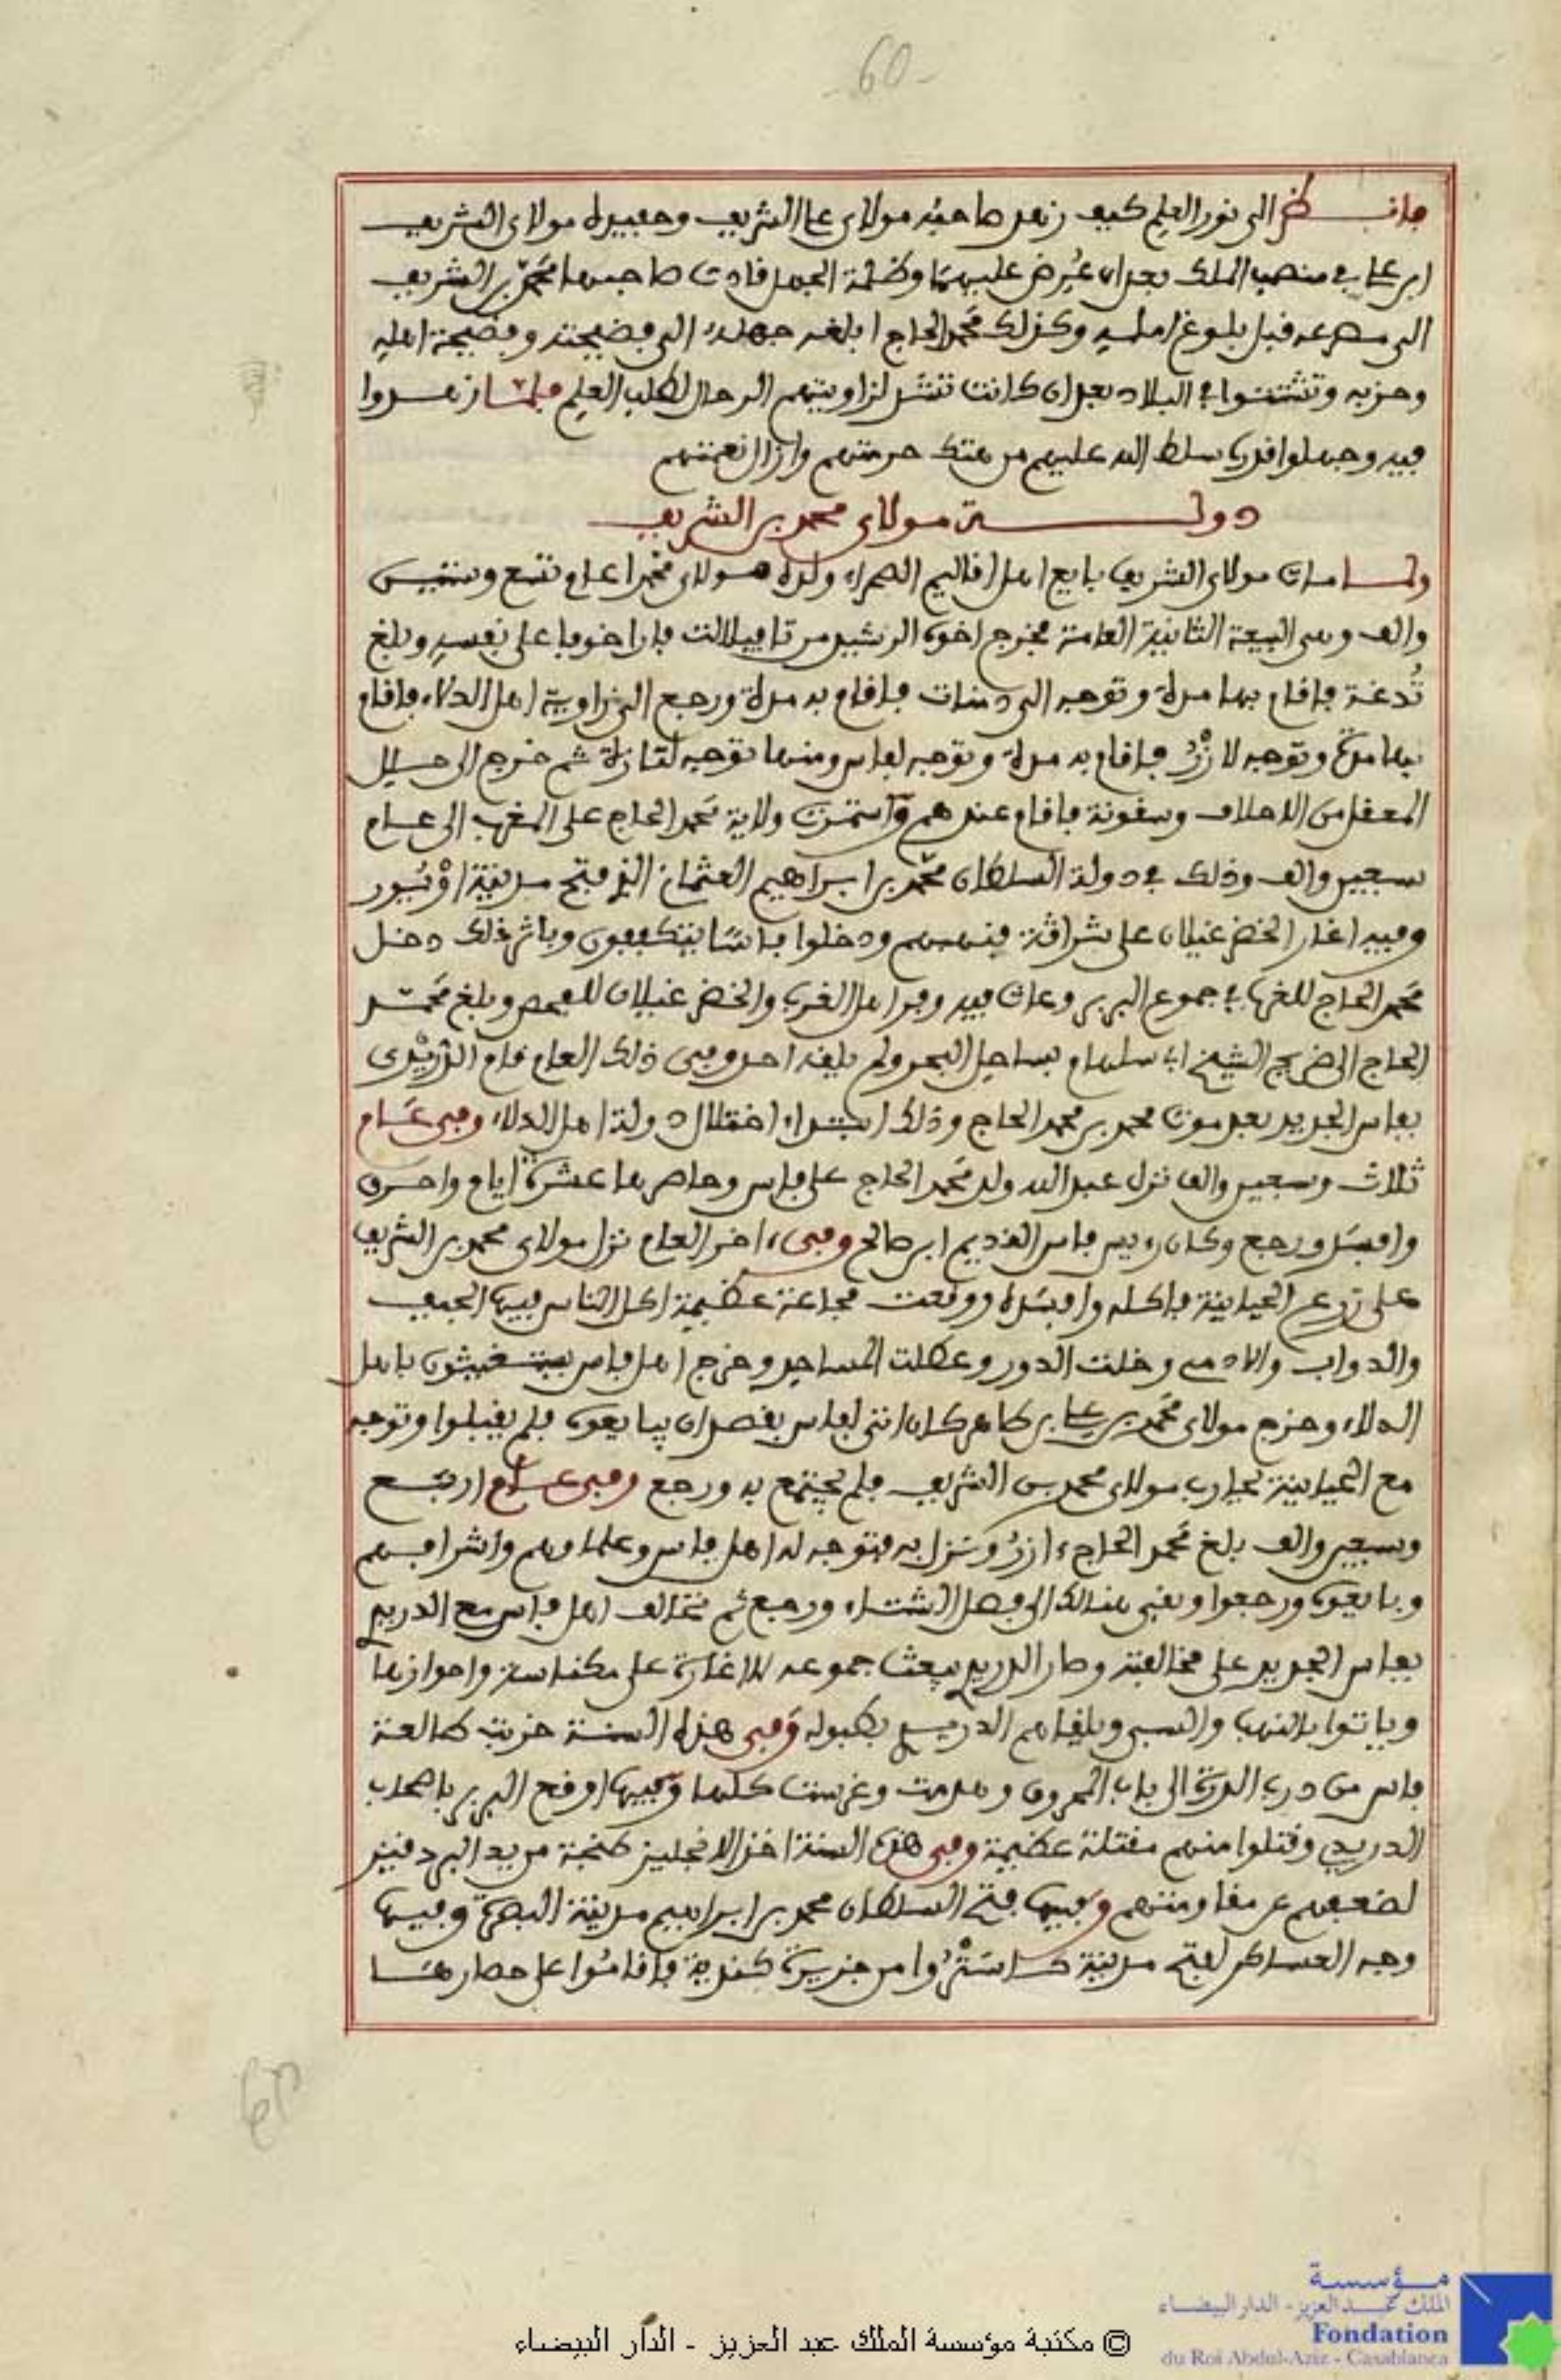 -60-
فانظر الى نور العلم كيف زهد صاحبه مولاى على الشريف وحفيده مولاى الشريف
ابن على فى منصب الملك بعد ان عُرض عليهما وظلمة الجهل قادت صاحبها محمد بن الشريف
الى مصرعه قبل بلوغ امله وكذلك محمد الحاج ابلغه جهله الى فضيحته وفضيحة اهله
وحزبه وتشتتوا فى البلاد بعد ان كانت تشد لزاويتهم الرحال لطلب العلم فلما زهدوا
فيه وجهلوا قدره سلط الله عليهم من هتك حرمتهم وازال نعمتهم
دولة مولاى محمد بن الشريف
ولما مات مولاى الشريف بايع اهل اقاليم الصحراء ولده مولاى محمدا عام تسع وستين
والف وهى البيعة الثانية العامة فخرج اخوه الرشيد من تافيلالت فارا خوفا على نفسه وبلغ
تُدغة فاقام بها مدة وتوجه الى دمنات فاقام به مدة ورجع الى زاوية اهل الدلاء فاقام
بها مدة وتوجه لازْرُ فاقام به مدة وتوجه لفاس ومنها توجه لتازة ثم خرج الى حلل
المعقل من الاحلاف وسقونة فاقام عندهم واستمرت ولاية محمد الحاج على المغرب الى عام
سبعين والف وذلك فى دولة السلطان محمد بن ابراهيم العثمانى الذى فتح مدينة اوْيُور
وفيه اغار الخضر غيلان على شراقة فنهبهم ودخلوا فاسًا يتكففون وباثر ذلك دخل
محمد الحاج للغرب فى جموع البربر وعاث فيه وفر اهل الغرب والخضر غيلان للقصر وبلغ محمد
الحاج الى ضريح الشيخ ابى سلهام بساحل البحر ولم يلقه احد وفى ذلك العام قام الدُّرَيْدى
بفاس الجديد بعد موت محمد بن محمد الحاج وذلك ابتداء اختلال دولة اهل الدلاء وفى عام
ثلاث وسبعين والف نزل عبد الله ولد محمد الحاج على فاس وحاصرها عشرة ايام واحرق
وافسد ورجع وكان رءيس فاس القديم ابن صالح وفى ءاخر العام نزل مولاى محمد بن الشريف
على زرع الحياينة فاكله وافسده ووقعت مجاعة عظيمة اكل الناس فيها الجيف
والدواب والادمى وخلت الدور وعطلت المساجد وخرج اهل فاس يستغيثون باهل
الدلاء وخرج مولاى محمد بن على بن طاهر كان اتى لفاس بقصد ان يبايعوه فلم يقبلوا وتوجه
مع الحياينة لحرب مولاى محمد بن الشريف فلم يجتمع به ورجع وفى عام اربع
وسبعين والف بلغ محمد الحاج ءازرُ ونزل به فتوجه له اهل فاس وعلماوهم واشرافهم
وبايعوه ورجعوا وبقى هنالك الى فصل الشتاء ورجع ثم تخالف اهل فاس مع الدريدى
بفاس الجديد على مخالفته وصار الدريدى يبعث جموعه للاغارة على مكناسة واحوازها
وياتوا بالنهب والسبى ويلقاهم الدريدى بطبوله وفى هذه السنة خربت طالعة
فاس من درب الدرة الى باب المحروق وهدمت وغرست كلها وفيها اوقع البربر باصحاب
الدريدى وقتلوا منهم مقتلة عظيمة وفى هذه السنة اخذ الانجليز طنجة من يد البردقيز
لضعفهم عن مقاومتهم وفيها فتح السلطان محمد بن ابراهيم مدينة البصرة وفيها
وجه العساكر لفتح مدينة كاسَتْرُوا من جزيرة كندية فاقامُوا على حصارها
مؤسسة
الملك عبد العزيز - الدار البيضاء
Fondation
du Roi Abdul-Aziz - Casablanca
© مكتبة مؤسسة الملك عبد العزيز - الدار البيضاء